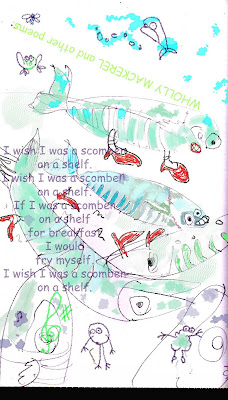 WHOLLY MACKEREL and other poems
I wish I was a scomber
on a shelf.
I wish I was a scomber
on a shelf.
If I was a scomber
on a shelf
for breakfast
I would
fry myself.
I wish I was a scomber
on a shelf.